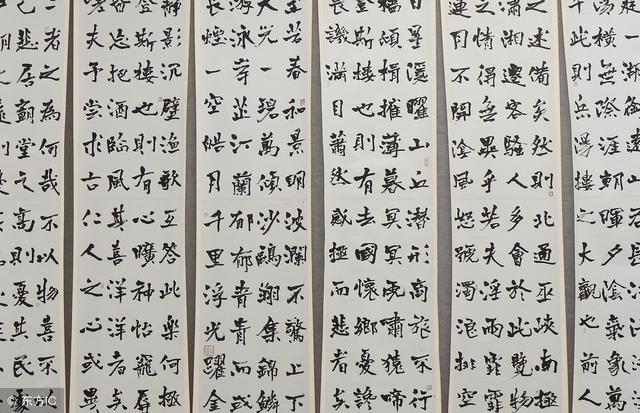 庭一湖銜遠山吞長江浩浩湯
湯横無際涯朝暉夕陰氣象萬
千此則岳陽樓之大觀也前人
之述備矣然則北通巫峽南極
瀟湘遷客騷人多會於此覽物
之情得無異乎若夫淫雨霏霏
連月不開陰風怒號濁浪排空
日星隱曜山岳潛形商旅不行
檣傾楫摧薄暮冥冥虎嘯猿啼
登斯樓也則有去國懷鄉憂讒
畏譏滿目蕭然感極而悲者矣
至若春和景明波瀾不驚上下
天光一碧萬頃沙鷗翔集錦鱗
游泳岸芷汀蘭郁郁青青而或
長煙一空皓月千里浮光躍金
靜影沉璧漁歌互答此樂何極
登斯樓也則有心曠神怡寵辱
皆忘把酒臨風其喜洋洋者矣
嗟夫予嘗求古仁人之心或異
二者之為何哉不以物喜不以
己悲居廟堂之高則憂其民
©東方IC